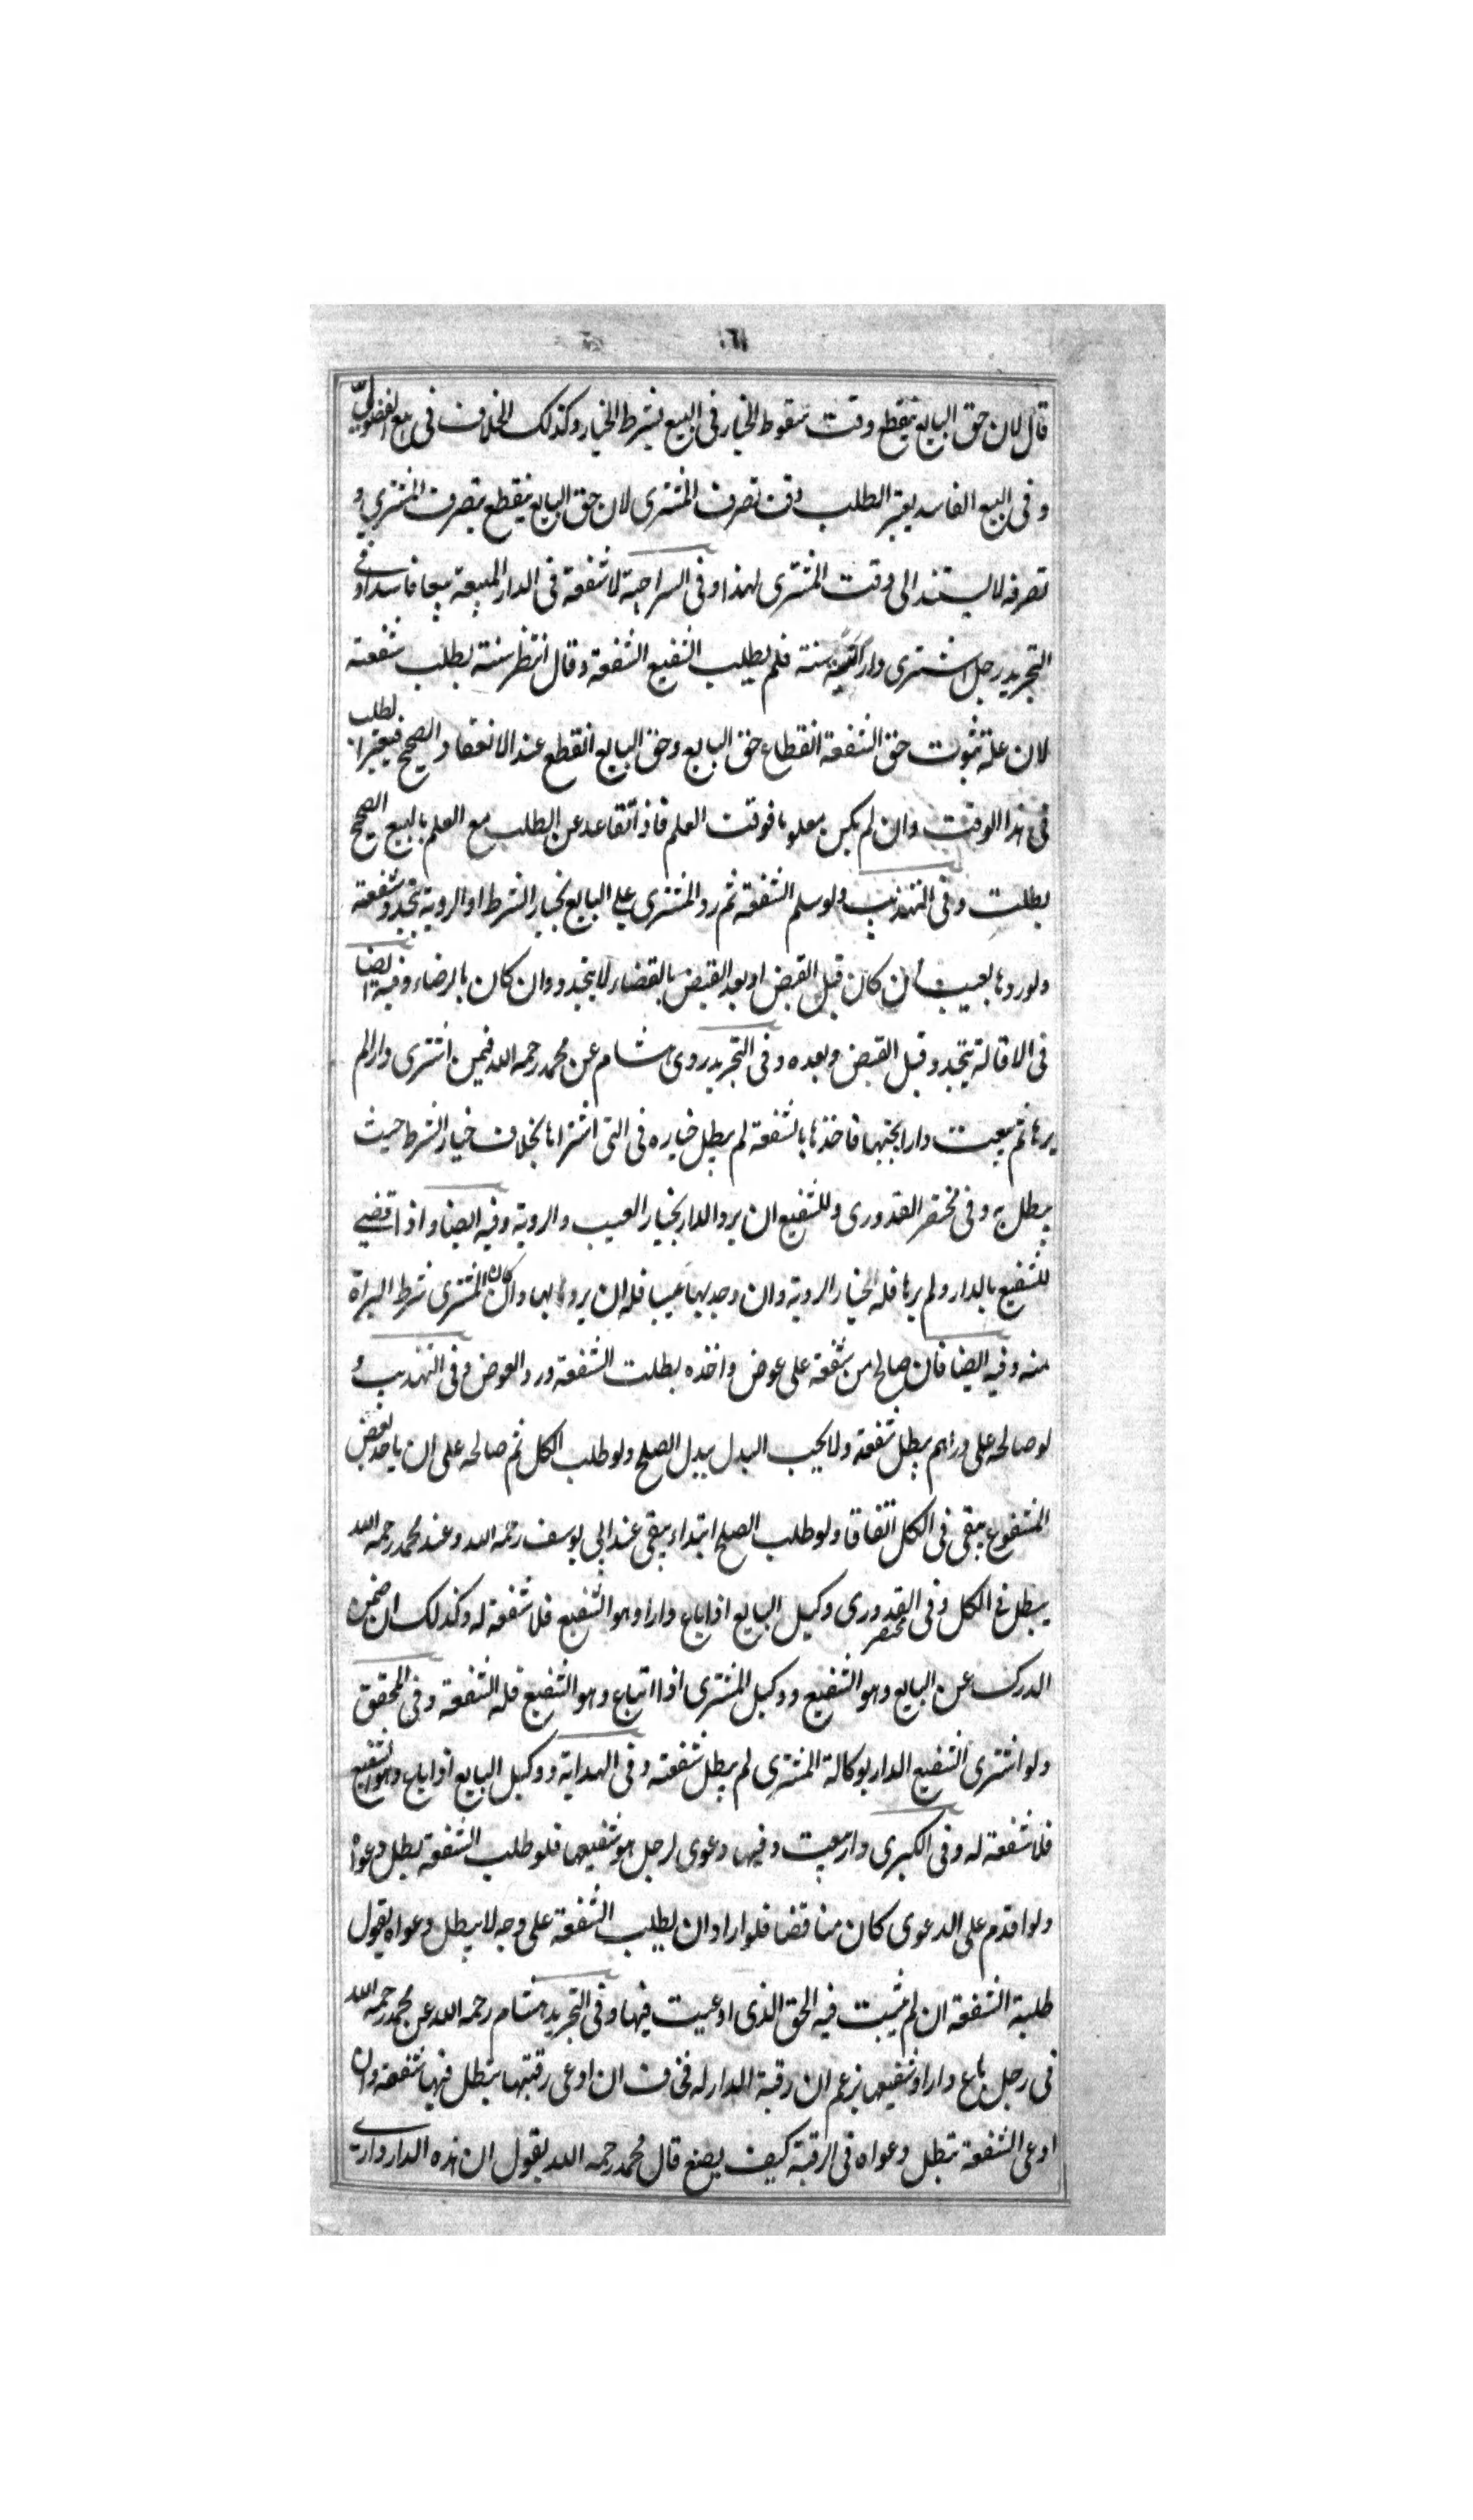 قال لان حق البايع ينقطع وقت سقوط الخيار فى البيع بشرط الخيار وكذلك الخلاف فى بيع الفضولى
و فى البيع الفاسد يعتبر الطلب وقت تصرف المشترى لان حق البايع ينقطع بتصرف المشترى و
تصرفه لا يستند الى وقت المشترى لهذا وفى السراجية لا شفعة فى الدار المبيعة بيعا فاسدا وفى
التجريد رجل اشترى دارا سنة فلم يطلب الشفيع الشفعة وقال انتظر سنة يطلب شفعته
لان علة ثبوت حق الشفعة انقطاع حق البايع وحق البايع انقطع عند الانعقاد الصحيح فيعتبر الطلب
فى هذا الوقت وان لم يكن معلوما فوقت العلم فاذا تقاعد عن الطلب مع العلم بالبيع الصحيح
بطلت وفى التهذيب ولو سلم الشفعة ثم رد المشترى على البايع بخيار الشرط او الروية يتجدد شفعته
ولو ردها بعيب ان كان قبل القبض او بعد القبض بالقضاء لا يتجدد وان كان بالرضاء وفيه ايضا
فى الاقالة يتجدد قبل القبض وبعده وفى التجريد روى هشام عن محمد رحمه الله فيمن اشترى دارا لم
يرها ثم بيعت دارا بجنبها فاخذها بالشفعة لم يبطل خياره فى التى اشتراها بخلاف خيار الشرط حيث
يبطل به وفى مختصر القدورى وللشفيع ان يرد الدار بخيار العيب والروية وفيه ايضا واذا قضى
للشفيع بالدار ولم يرها فله الخيار الروية وان وجد بها عيبا فله ان يردها بها وان كان المشترى شرط البراة
منه وفيه ايضا فان صالح من شفعة على عوض واخذه بطلت الشفعة ورد العوض وفى التهذيب و
لو صالحه على دراهم يبطل شفعته ولا يجب البدل ببدل الصلح ولو طلب الكل ثم صالحه على ان ياخذ بعض
المشفوع يبقى فى الكل اتفاقا ولو طلب الصلح ابتداء يبقى عند ابى يوسف رحمه الله وعند محمد رحمه الله
يبطل فى الكل وفى مختصر القدورى وكيل البايع اذا باع دارا وهو الشفيع فلا شفعة له وكذلك ان ضمن
الدرك عن البايع وهو الشفيع ووكيل المشترى اذا ابتاع وهو الشفيع فله الشفعة وفى المحقق
ولو اشترى الشفيع الدار بوكالة المشترى لم يبطل شفعته وفى الهداية ووكيل البايع اذا باع وهو الشفيع
فلا شفعة له وفى الكبرى دار بيعت وفيها دعوى لرجل هو شفيعها فلو طلب الشفعة بطل دعواه
ولو اقدم على الدعوى كان مناقضا فلو اراد ان يطلب الشفعة على وجه لا يبطل دعواه يقول
طلبة الشفعة ان لم يثبت فيه الحق الذى ادعيت فيها وفى التجريد هشام رحمه الله عن محمد رحمه الله
فى رجل باع دارا وشفيعها يزعم ان رقبة الدار له فخاف ان ادعى رقبتها يبطل فيها شفعته وان
ادعى الشفعة تبطل دعواه فى الرقبة كيف يصنع قال محمد رحمه الله يقول ان هذه الدار دارى